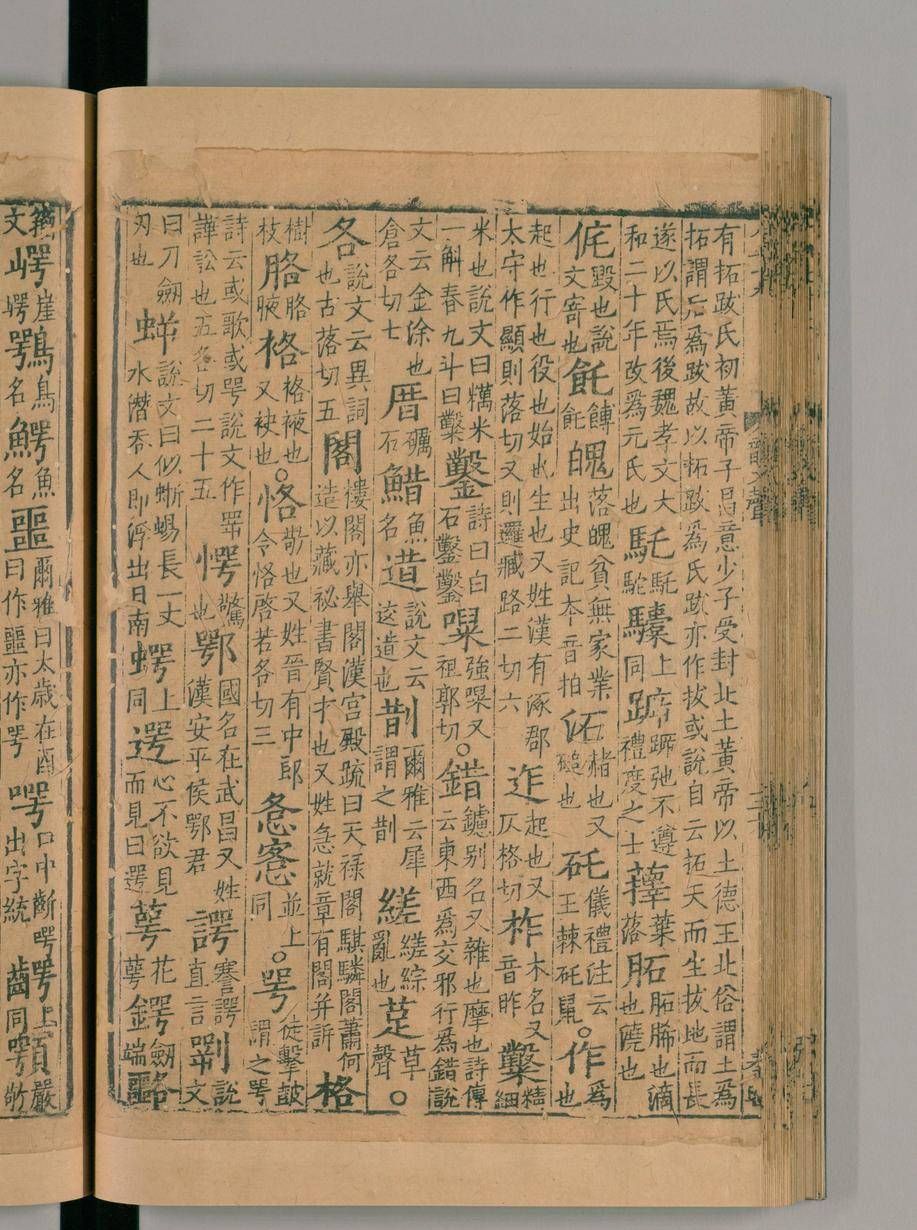 有拓跋氏初黃帝子昌意少子受封北土黃帝以土德王北俗謂土為
拓謂后為跋故以拓跋為氏跋亦作拔或說自云拓天而生拔地而長
遂以氏焉後魏孝文大和二十年改為元氏也馲馲駝驝上同跅跅弛不遵禮度之士蘀葉落
侂毀也說文寄也飥餺飥魄落魄貧無家業出史記本音拍沰赭也又磓也矺儀禮注云王棘矺鼠。作為也
起也行也役也始也生也又姓漢有涿郡太守作顯則落切又則邏臧路二切六迮起也又仄格切柞木名又音昨糳精細
米也說文曰糲米一斛舂九斗曰糳鑿詩曰白石鑿鑿㗱強㗱又祖郭切。錯鑢別名又雜也摩也詩傳云東西為交邪行為錯說
文云金涂也倉各切七厝礪石䱜魚名逪說文云迹逪也剒爾雅云犀謂之剒縒縒綜亂也莡草。
各說文云異詞也古落切五閣樓閣亦舉閣漢宮殿疏曰天祿閣騏驎閣蕭何造以藏秘書賢才也又姓急就章有閣并訢格
樹枝胳胳腋袼袼裌也又袂也。恪敬也又姓晉有中郎令恪啓苦各切三愙窸並上同。咢徒擊鼓謂之咢
詩云或歌或咢說文作㖾譁訟也五各切二十五愕驚也鄂國名在武昌又姓漢安平侯鄂君諤謇諤直言㓵說文
曰刀劒刃也說文曰似蜥蜴長一丈水潛吞人即浮出日南上同遻心不欲見而見曰遻萼花萼鍔劒端
籀文崿崖崿鶚鳥名鰐魚名噩爾雅曰太歲在酉曰作噩亦作咢㗁口中斷㗁出字統齶上同顎嚴敬